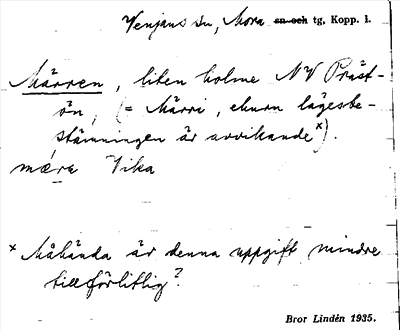 Venjans sn, Mora sn och tg, Kopp. l.
Märren, liten holme NV Präst-
ön, (= Märri, ehuru lägesbe-
stämningen är avvikande x).
mære Vika
x Måhända är denna uppgift mindre
tillförlitlig?
Bror Lindén 1935.